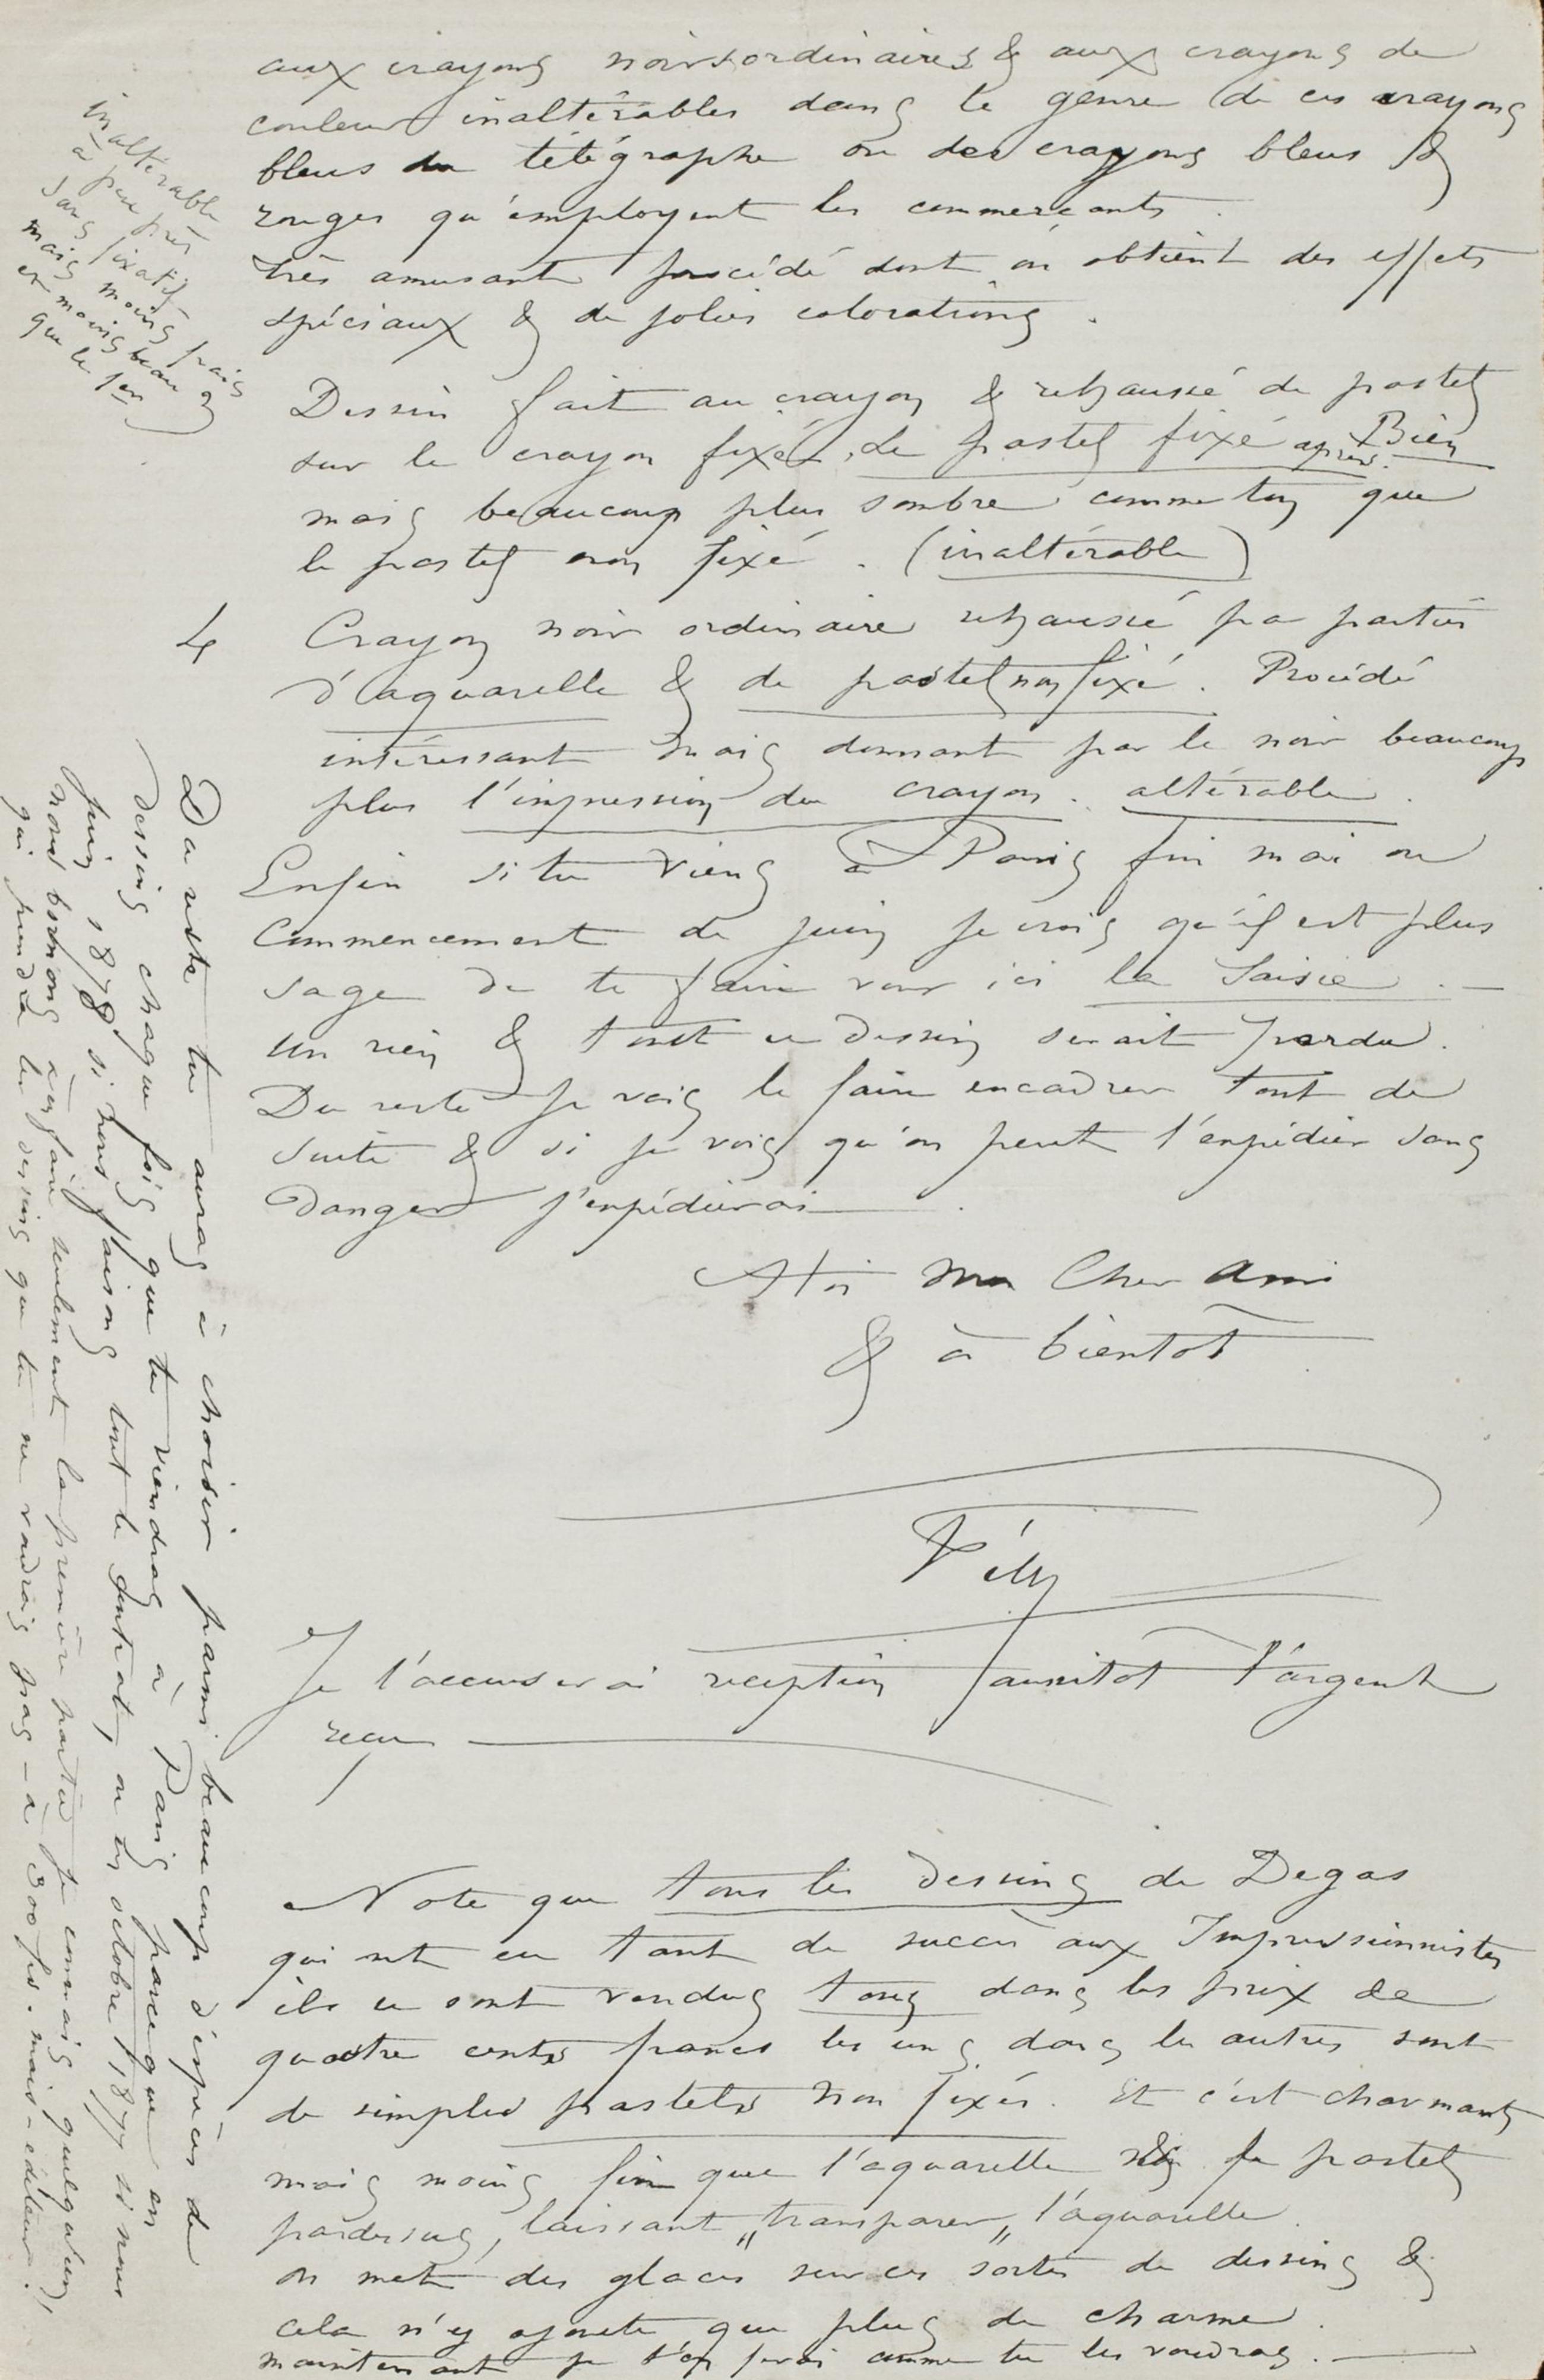 aux crayons noirs ordinaires & aux crayons de
couleur inaltérables dans le genre de ces crayons
bleus du télégraphe ou des crayons bleus &
rouges qu'employent les commerçants.
très amusant procédé dont on obtient des effets
spéciaux & de jolies colorations.
inaltérable
à peu près
sans fixatif
mais moins frais
et moins beau
que le
Dessin fait au crayon & rehaussé de pastel
sur le crayon fixé, le pastel fixé après. Bien
mais beaucoup plus sombre comme ton que
le pastel non fixé. (inaltérable)
4 Crayon noir ordinaire rehaussé par parties
d'aquarelle & de pastel non fixé. Procédé
intéressant mais donnant par le noir beaucoup
plus l'impression du crayon. altérable.
Enfin si tu viens à Paris fin mai ou
commencement de juin je crois qu'il est plus
sage de te faire voir ici la Saisie. —
un rien & tout ce dessin serait perdu.
Du reste je vais le faire encadrer tout de
suite & si je vois qu'on peut l'expédier sans
danger j'expédierai.
À toi mon Cher ami
& à bientôt
Fély
Je t'accuserai réception aussitôt l'argent
reçu
Note que tous les dessins de Degas
qui ont eu tant de succès aux Impressionnistes
ils se sont vendus tous dans les prix de
quatre cents francs les uns dans les autres sont
de simples pastels non fixés. Et c'est charmant
mais moins fin que l'aquarelle & le pastel
pardessus, laissant "transparer" l'aquarelle.
on met des glaces sur ces sortes de dessins &
cela n'y ajoute que plus de charme.
maintenant je t'en ferai comme tu les voudras. —
Du reste tu auras à choisir parmi beaucoup d'espèces de
dessins chaque fois que tu viendras à Paris parce que en
juin 1878 si nous faisons tout le contrat, ou en octobre 1877 si nous
nous bornons à en faire seulement la première partie je connais quelqu'un,
qui prendra les dessins que tu ne voudrais pas – à 300 frs. mais – éditeur.